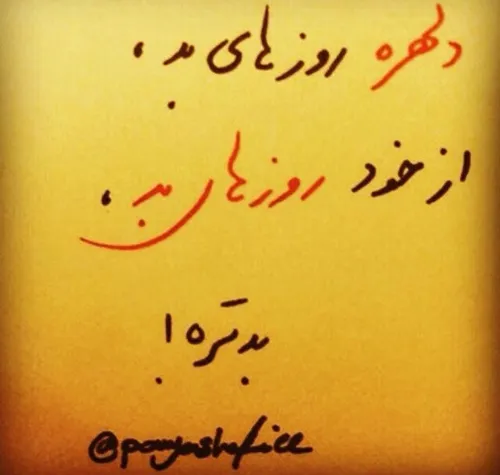 دلهره روزهای بد،
از خود روزهای بد،
بدتره!